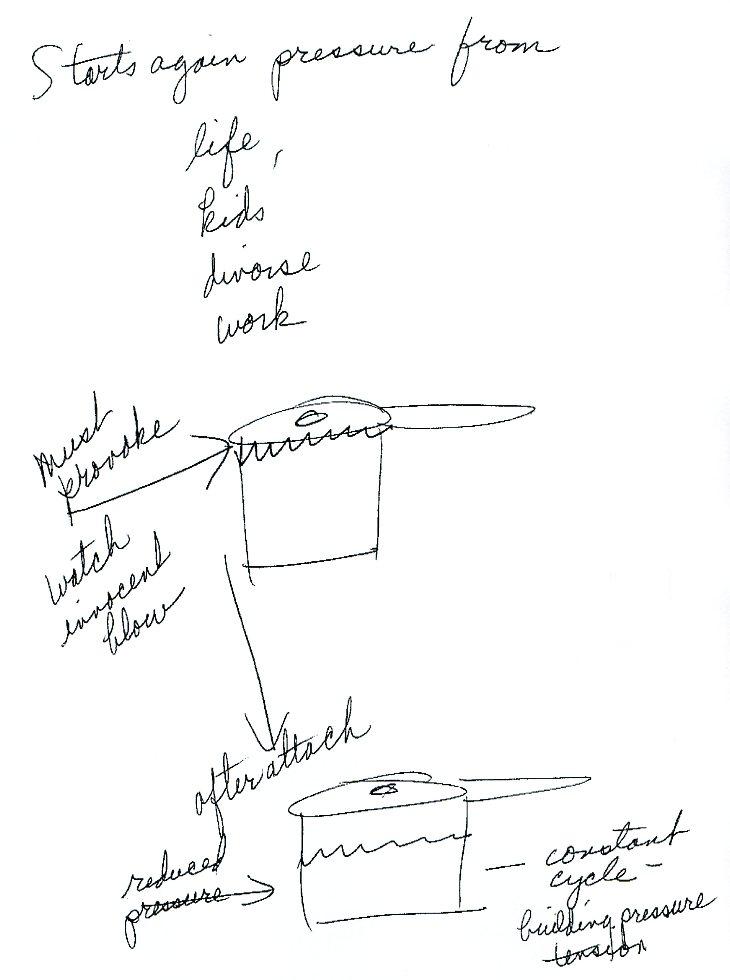 Starts again pressure from
life,
kids
divorse
work
must
provoke
watch
innocent
blow
after attach
reduced
pressure
constant
cycle -
building pressure
tension